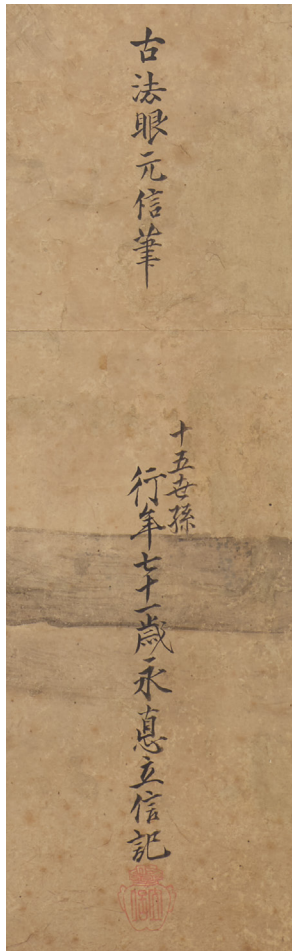 古法眼元信筆
十五世孫
行年七十一歳永悳立信記